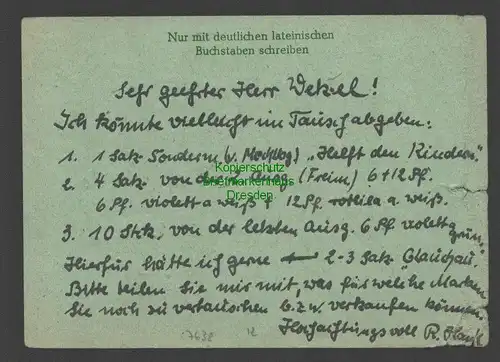 Nur mit deutlichen lateinischen
Buchstaben schreiben
Sehr geehrter Herr Wetzel!
Ich könnte vielleicht im Tausch abgeben:
1. 1 Satz Sonderm (v. Mecklbg) "Helft den Kindern"
Kopierschutz
2. 4 Satz von der Ausg. (Freim) 6+12 Pf.
Briefmarkenhaus
6 Pf. violett a weiß + 12 Pf. rotlila a. weiß.
Dresden
3. 10 Stck. von der letzten Ausg. 6 Pf. violett grün.
Hierfür hätte ich gerne 2-3 Satz "Glauchau".
Bitte teilen Sie mir mit, was für welche Marken
Sie noch zu vertauschen b.z.w. verkaufen können.
Hochachtungsvoll R.
17638